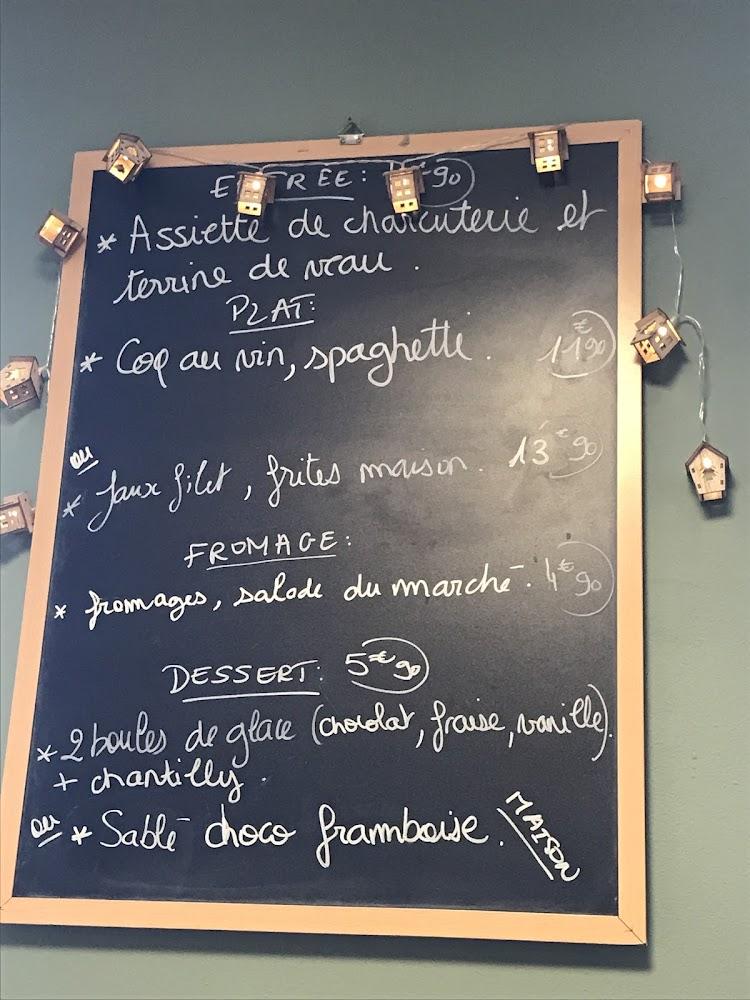 ENTRÉE: €90
* Assiette de charcuterie et
terrine de veau.
PLAT:
* Coq au vin, spaghetti. 11€90
ou
* faux filet, frites maison. 13€90
FROMAGE:
* fromages, salade du marché. 4€90
DESSERT: 5€90
* 2 boules de glace (chocolat, fraise, vanille).
+ chantilly.
ou * Sablé choco framboise. MAISON